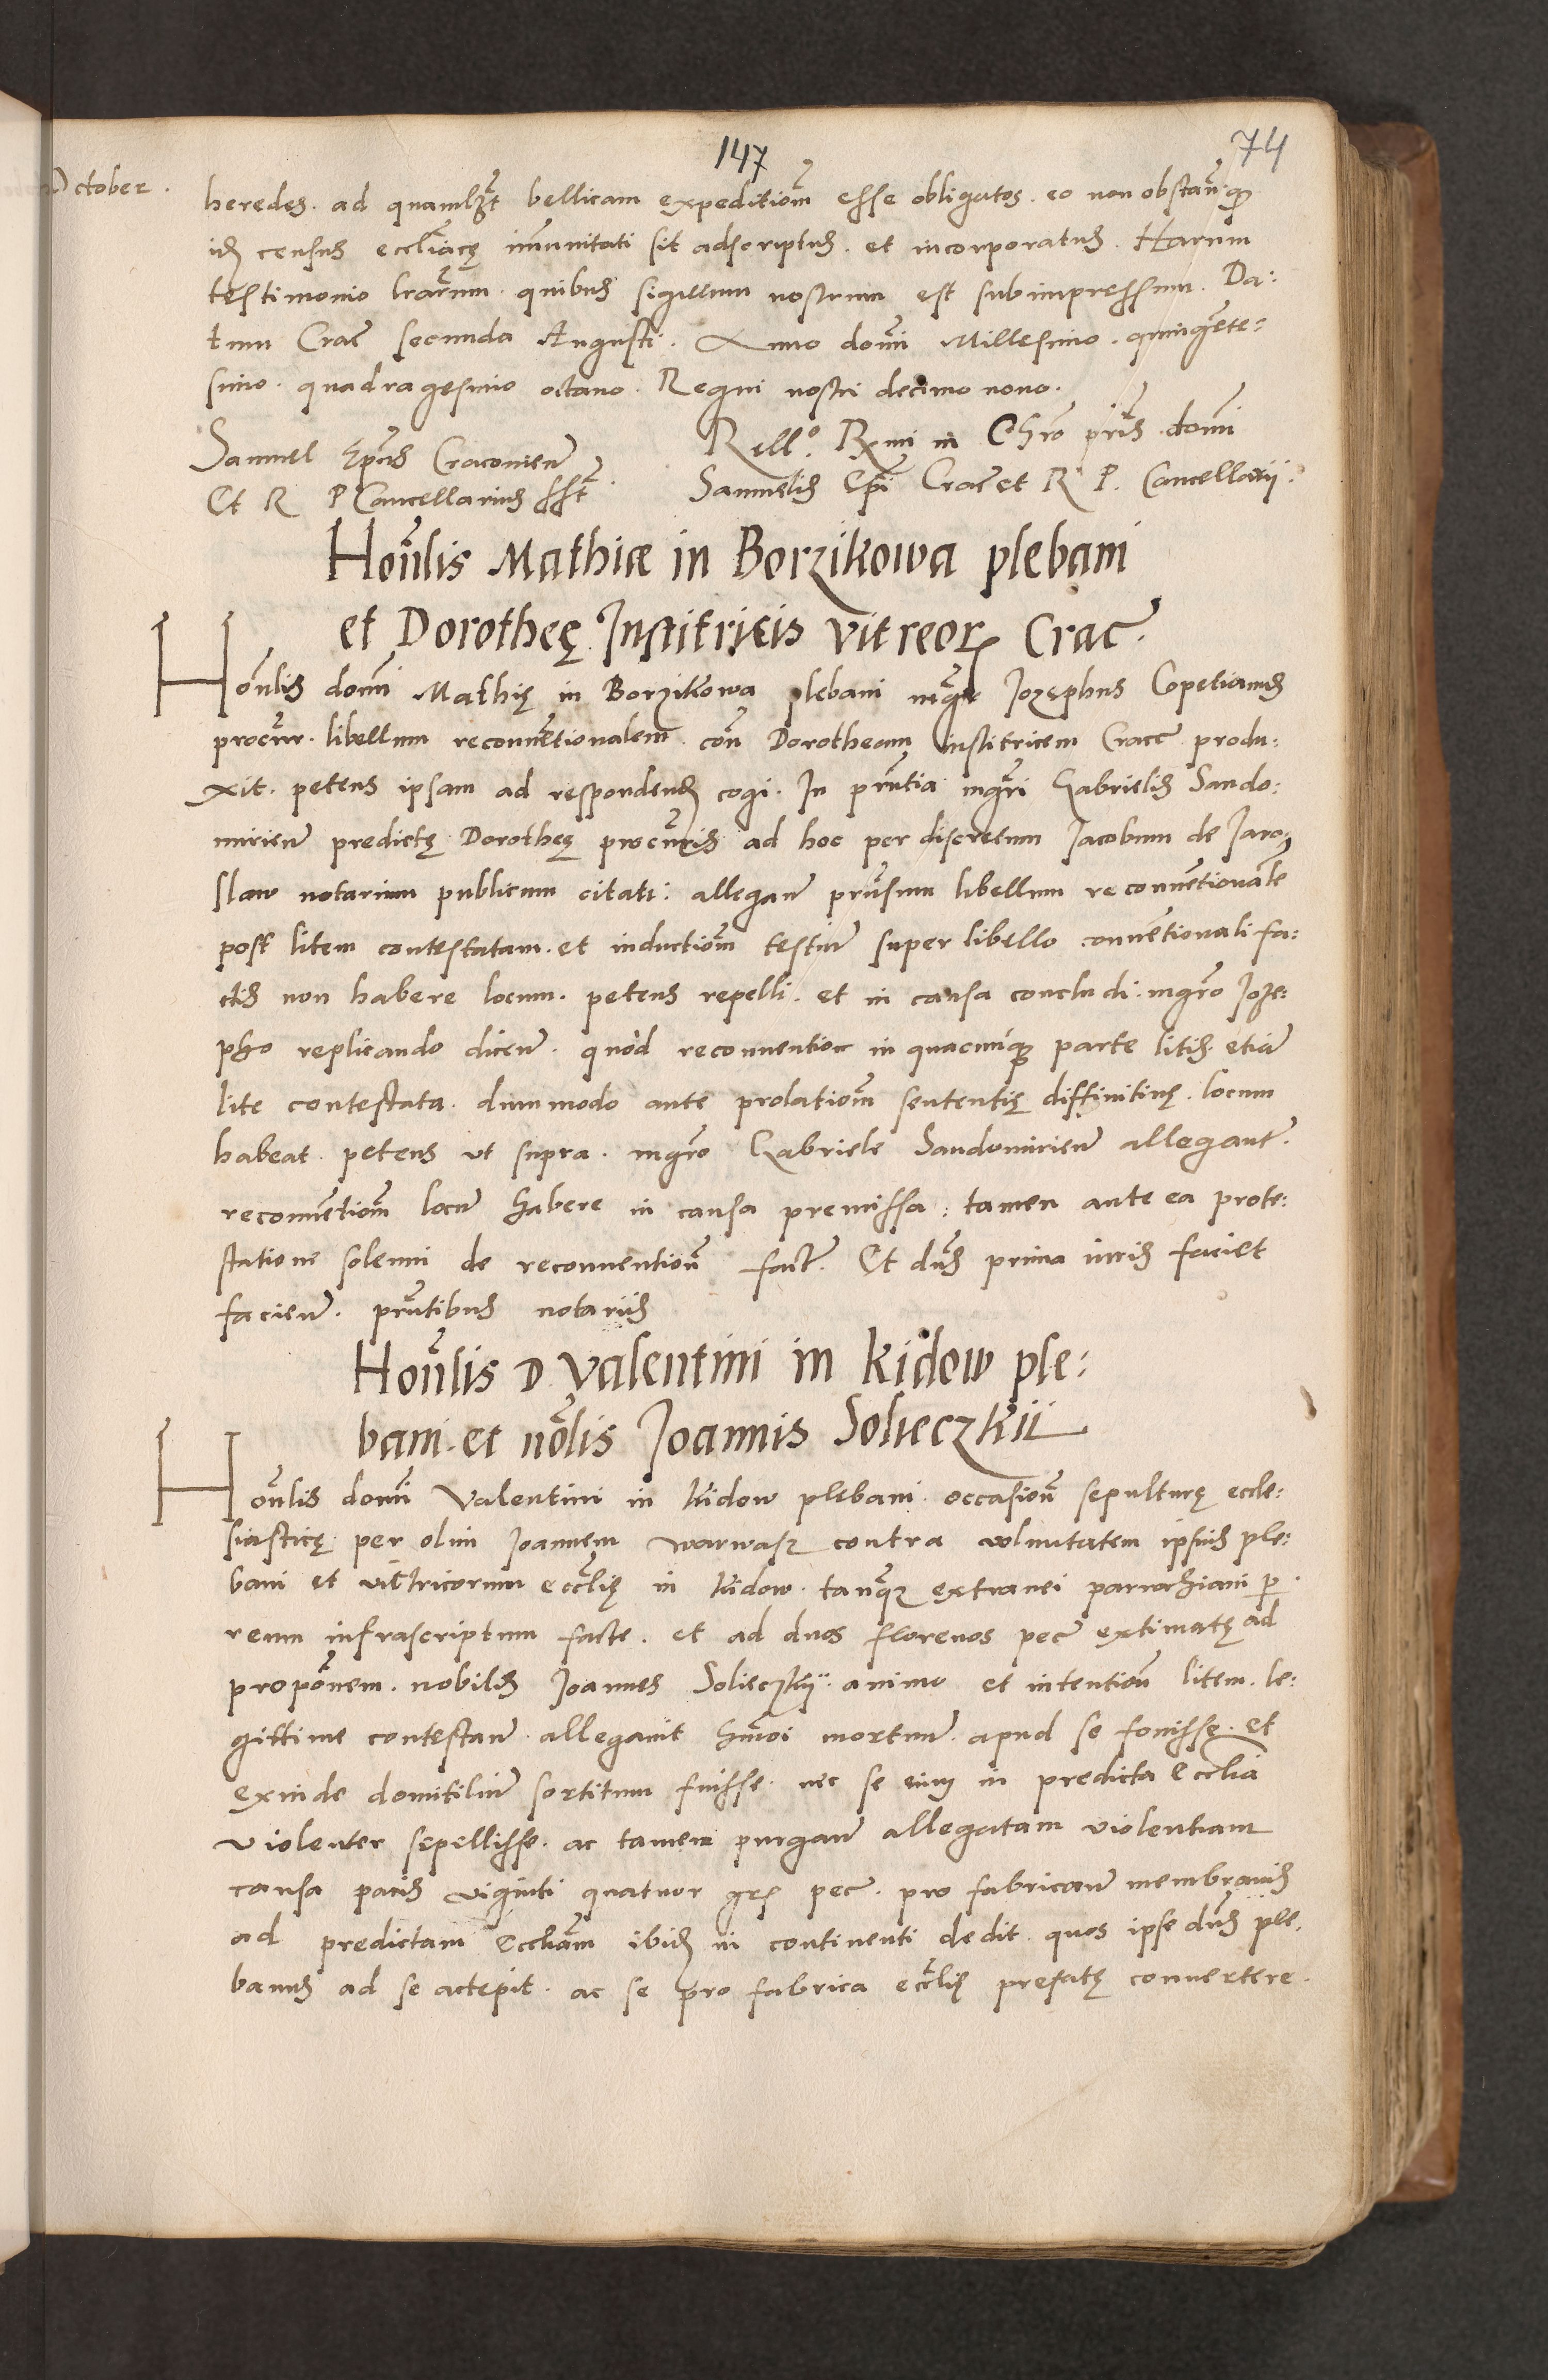 147
74
October.
heredes. ad quamlzt bellicam expeditiom esse obligatos. eo non obstan. qp
idem census eccliacę immunitati sit adscriptus. et incorporatus. Harum
testimonio lrarum. quibus sigillum nostrum est subimpressum. Da:
tum Crac secunda Augusti. Anno domi Millesimo. quingente:
simo. quadragesimo octavo. Regni nostri decimo nono.
Samuel Epus Cracovien
Et R P Cancellarius sst
Rello. Rmi in Chro pris domi
Samuelis Epi Crac et R. P. Cancellarii.
Honlis Mathiæ in Borzikowa plebani
et Dorotheę Institricis vitreor Crac.
Honlis domi Mathię in Borzikowa plebani mgr Jozephus Copetianus
procur. libellum reconuentionalem. con Dorotheam institricem Crac produ:
xit. petens ipsam ad respondendum cogi. In pntia mgri Gabrielis Sando:
mirien predictę Dorotheę procuris ad hoc per discretum Jacobum de Jaro,
slaw notarium publicum citati: allegan prnsum libellum reconuentionale
post litem contestatam. et inductiom testium super libello conuentionali fa:
ctis non habere locum. petens repelli. et in causa concludi. mgro Joze:
pho replicando dicen. quod reconuentio in quacumque parte litis. etiam
lite contestata. dummodo ante prolatiom sententię diffinitiuę. locum
habeat. petens ut supra. mgro Gabriele Sandomirien allegant.
reconuentiom locum habere in causa premissa: tamen ante ea prote:
statione solenni de reconuention fact. Et dns prima iuris faciet
facien. pntibus notariis
Honlis D. Valentini in Kidow ple:
bani. et nolis Joannis Solieczkii
Honlis domi Valentini in Kidow plebani. occasion sepulturę eccle:
siasticę per olim Joannem warwasz contra voluntatem ipsius ple:
bani et vitricorum ecclię in Kidow. tanquam extranei parrochiani per
reum infrascriptum facte. et ad duos florenos pec extimatę ad
proponem. nobilis Joannes Solieczkii. animo et intention litem. le:
gittime contestan. allegauit hmoi mortuum. apud se fouisse. et
exinde domicilium sortitum fuisse. nec se eum in predicta Ecclia
violenter sepellisse. ac tamen purgan allegatam violentiam
causa pacis viginti quatuor grs pec. pro fabrican membranis
ad predictam Eccliam ibidem in continenti dedit. quos ipse dns ple,
banus ad se accepit. ac se pro fabrica ecclię prefatę conuertere.